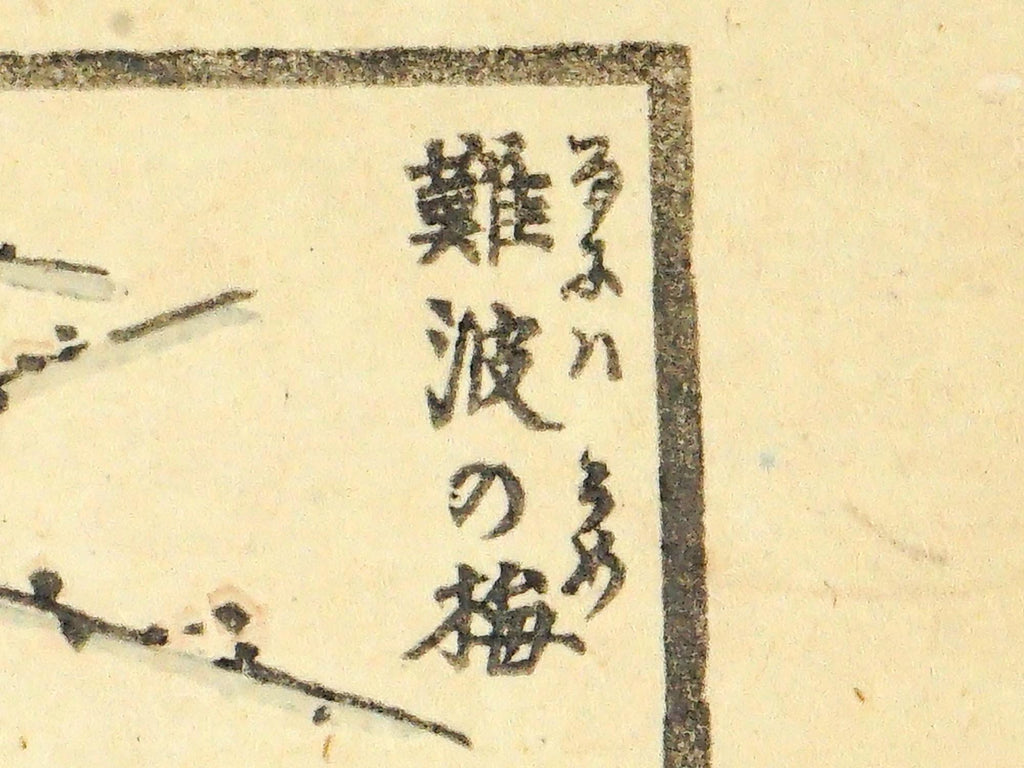 難波の梅
なにハ うめ